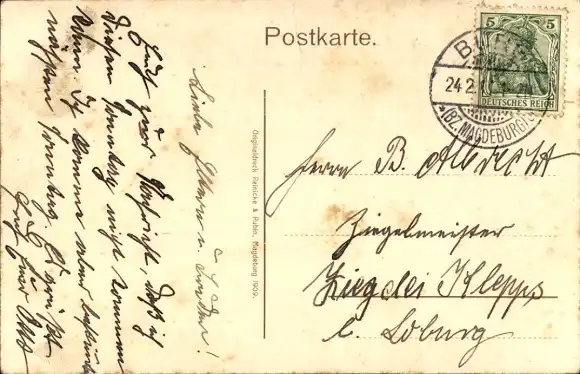 Postkarte.
5 5
DEUTSCHES REICH
24 2
*(BZ. MAGDEBURG)
Herrn B. Albrecht
Ziegelmeister
Ziegelei Klepps
b. Loburg
Originaldruck Reinicke & Rubin, Magdeburg 1909.
Liebe Eltern u.
Euch zur Nachricht, daß ich
diesen Sonntag nicht kommen
kann. Ich komme aber
nächsten Sonntag. Es grüßt
Euch Euer Otto